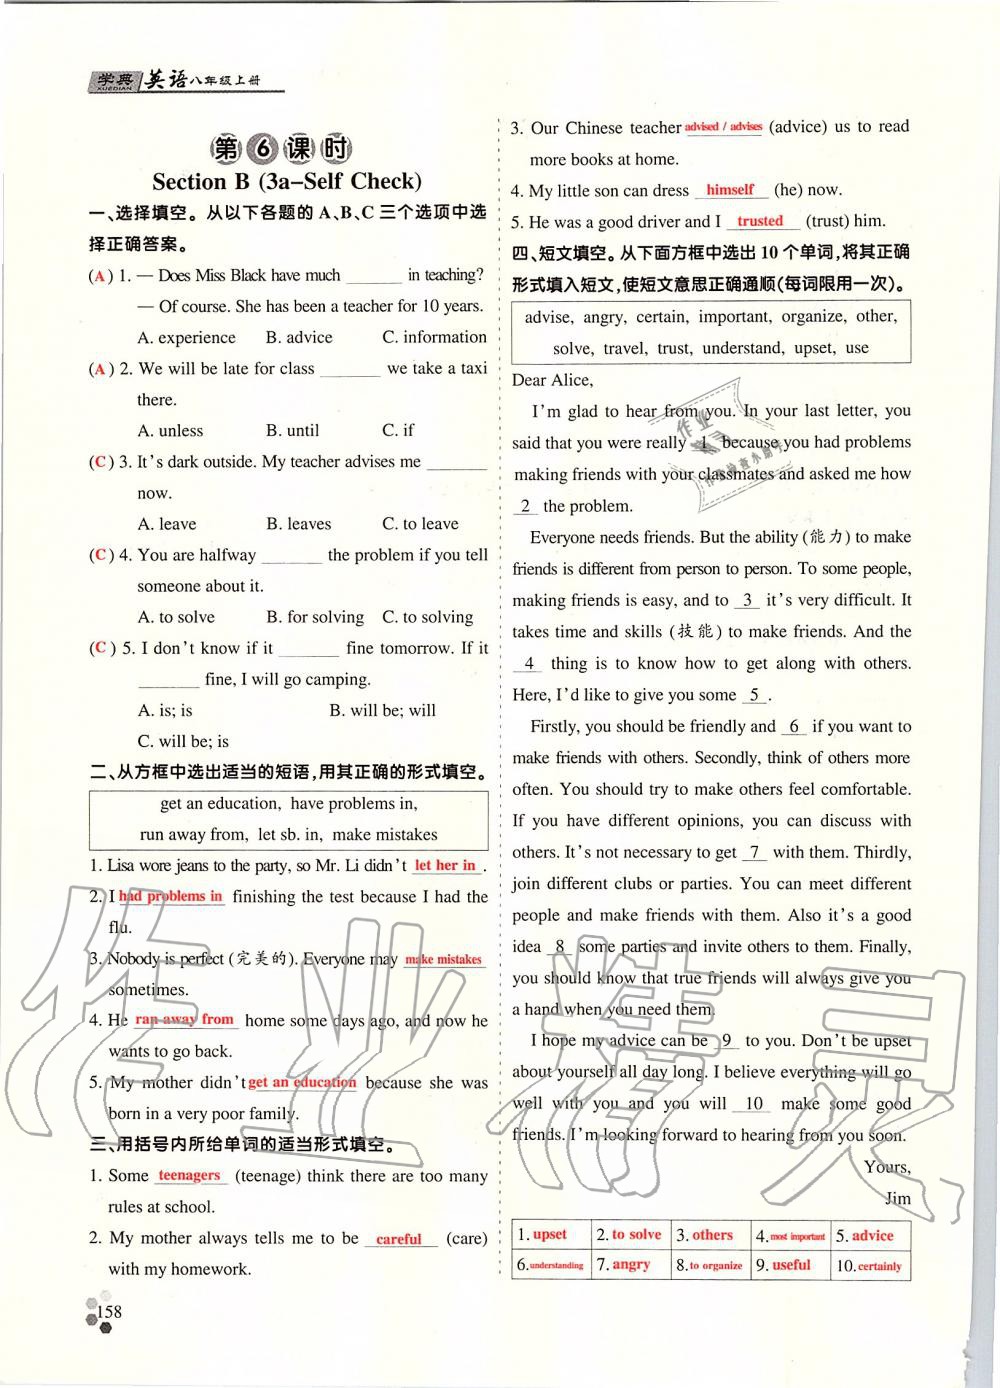 学典 XUEDIAN 英语八年级上册
第6课时
Section B (3a–Self Check)
一、选择填空。从以下各题的 A、B、C 三个选项中选
择正确答案。
(A) 1. — Does Miss Black have much ______ in teaching?
— Of course. She has been a teacher for 10 years.
A. experience B. advice C. information
(A) 2. We will be late for class ______ we take a taxi
there.
A. unless B. until C. if
(C) 3. It's dark outside. My teacher advises me ______
now.
A. leave B. leaves C. to leave
(C) 4. You are halfway ______ the problem if you tell
someone about it.
A. to solve B. for solving C. to solving
(C) 5. I don't know if it ______ fine tomorrow. If it
______ fine, I will go camping.
A. is; is B. will be; will
C. will be; is
二、从方框中选出适当的短语,用其正确的形式填空。
get an education, have problems in,
run away from, let sb. in, make mistakes
1. Lisa wore jeans to the party, so Mr. Li didn't let her in.
2. I had problems in finishing the test because I had the
flu.
3. Nobody is perfect (完美的). Everyone may make mistakes
sometimes.
4. He ran away from home some days ago, and now he
wants to go back.
5. My mother didn't get an education because she was
born in a very poor family.
三、用括号内所给单词的适当形式填空。
1. Some teenagers (teenage) think there are too many
rules at school.
2. My mother always tells me to be careful (care)
with my homework.
158
3. Our Chinese teacher advised / advises (advice) us to read
more books at home.
4. My little son can dress himself (he) now.
5. He was a good driver and I trusted (trust) him.
四、短文填空。从下面方框中选出 10 个单词,将其正确
形式填入短文,使短文意思正确通顺(每词限用一次)。
advise, angry, certain, important, organize, other,
solve, travel, trust, understand, upset, use
Dear Alice,
I'm glad to hear from you. In your last letter, you
said that you were really 1 because you had problems
making friends with your classmates and asked me how
2 the problem.
Everyone needs friends. But the ability (能力) to make
friends is different from person to person. To some people,
making friends is easy, and to 3 it's very difficult. It
takes time and skills (技能) to make friends. And the
4 thing is to know how to get along with others.
Here, I'd like to give you some 5.
Firstly, you should be friendly and 6 if you want to
make friends with others. Secondly, think of others more
often. You should try to make others feel comfortable.
If you have different opinions, you can discuss with
others. It's not necessary to get 7 with them. Thirdly,
join different clubs or parties. You can meet different
people and make friends with them. Also it's a good
idea 8 some parties and invite others to them. Finally,
you should know that true friends will always give you
a hand when you need them.
I hope my advice can be 9 to you. Don't be upset
about yourself all day long. I believe everything will go
well with you and you will 10 make some good
friends. I'm looking forward to hearing from you soon.
Yours,
Jim
1. upset 2. to solve 3. others 4. most important 5. advice
6. understanding 7. angry 8. to organize 9. useful 10. certainly
作业精灵